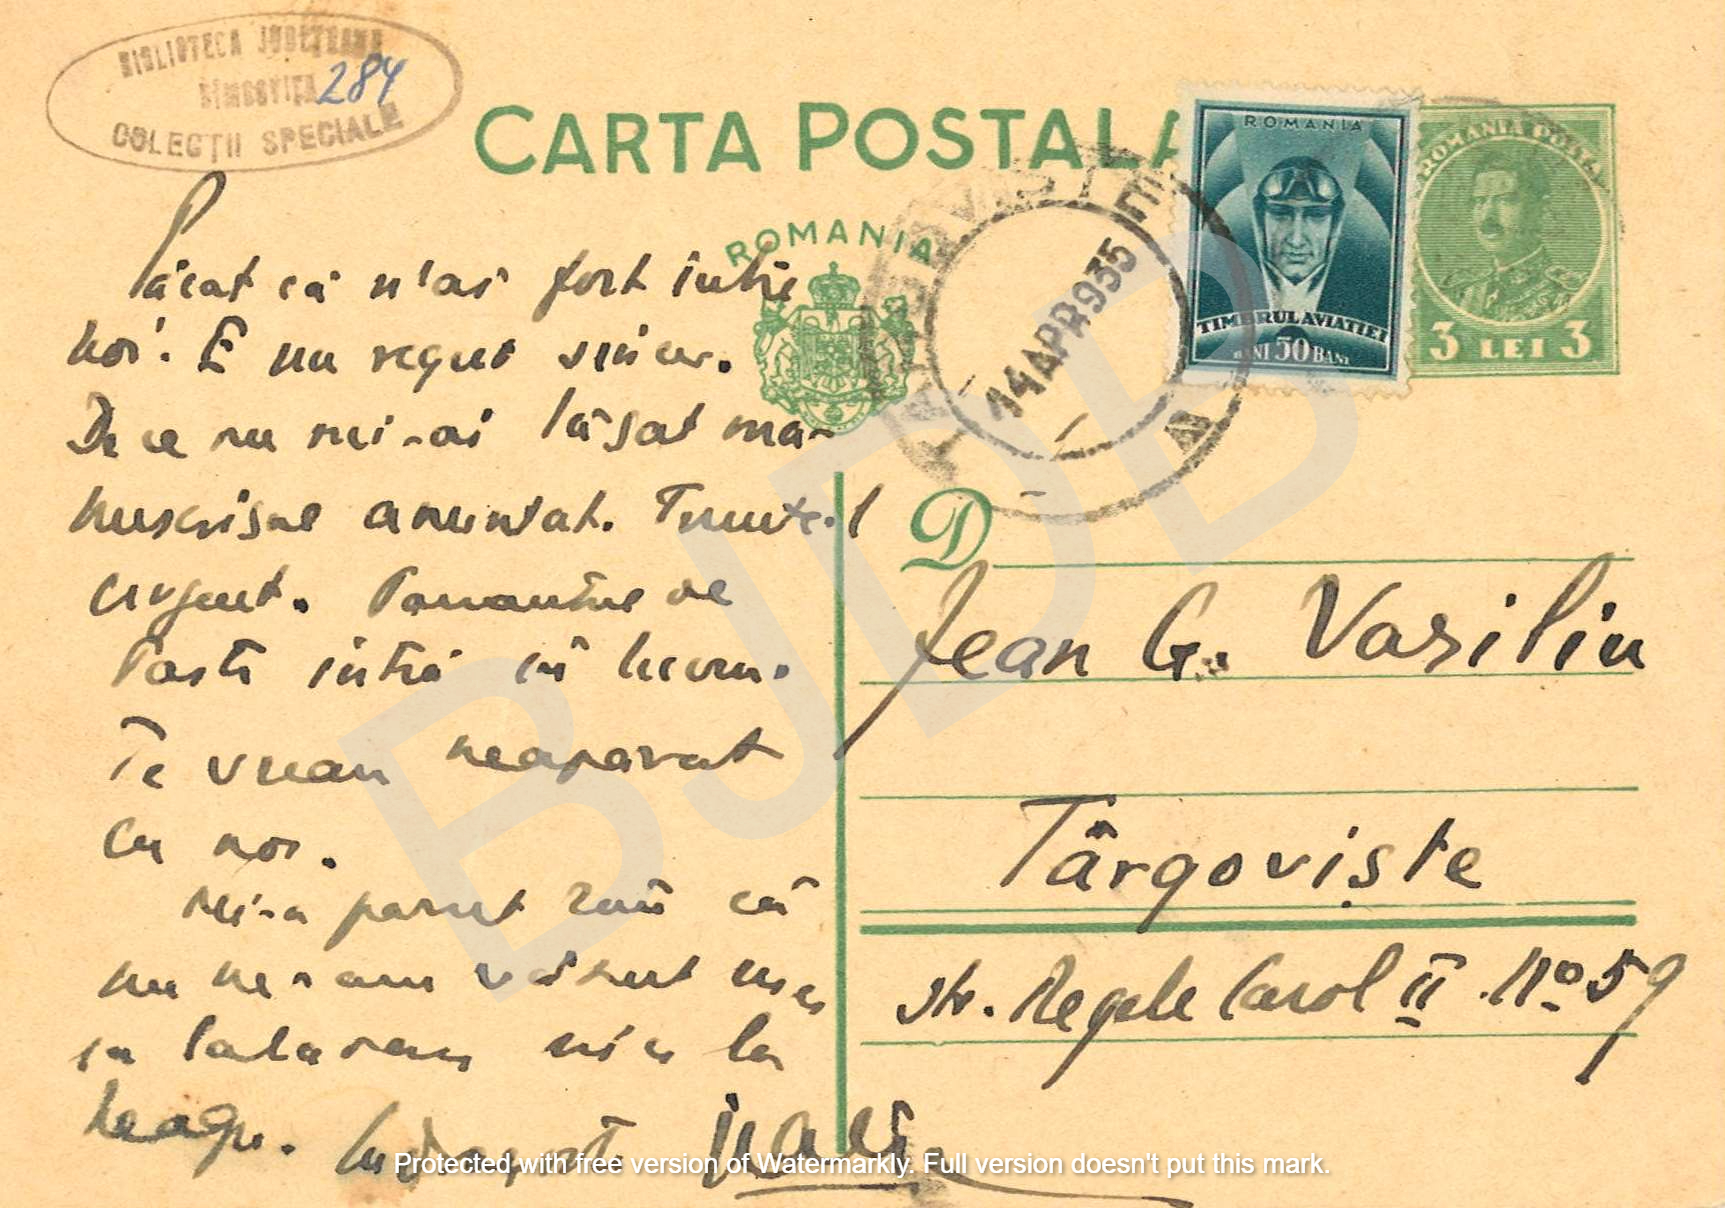 BIBLIOTECA JUDEȚEANĂ
DÎMBOVIȚA 284
COLECȚII SPECIALE
CARTA POSTALA
ROMANIA
ROMANIA
TIMBRUL AVIATIEI
BANI 50 BANI
ROMANIA POSTA
3 LEI 3
TARGOVISTE
14 APR 935
Păcat că n'ai fost între
noi. E un regret sincer.
De ce nu mi-ai lăsat ma-
nuscrisul anunțat. Trimite-l
urgent. de
Paști intră în
Te vream neaparat
cu noi.
Mi-a parut rău că
nu ne-am văzut nici
la nici la
Neagu. Cu drag
D
Jean G. Vasiliu
Târgoviște
str. Regele Carol II. No 59
BJDB
Protected with free version of Watermarkly. Full version doesn't put this mark.